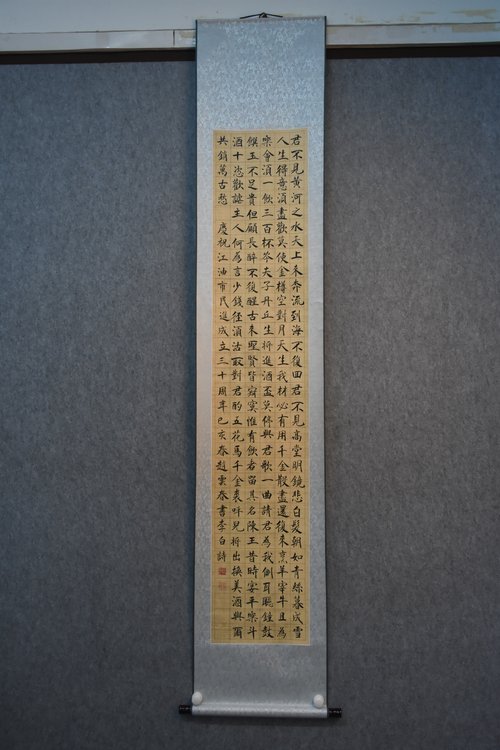 君不見黃河之水天上来奔流到海不復回君不見高堂明鏡悲白髮朝如青絲暮成雪
人生得意須盡歡莫使金樽空對月天生我材必有用千金散盡還復来烹羊宰牛且為
樂會須一飲三百杯岑夫子丹丘生将進酒盃莫停與君歌一曲請君為我倒耳聽鐘鼓
饌玉不足貴但願長醉不復醒古来聖賢皆寂寞惟有飲者留其名陳王昔時宴平樂斗
酒十恣歡謔主人何為言少錢徑須沽取對君酌五花馬千金裘呼兒将出換美酒與爾
共銷萬古愁 慶祝江油市民進成立三十周年己亥春趙雲春書李白詩